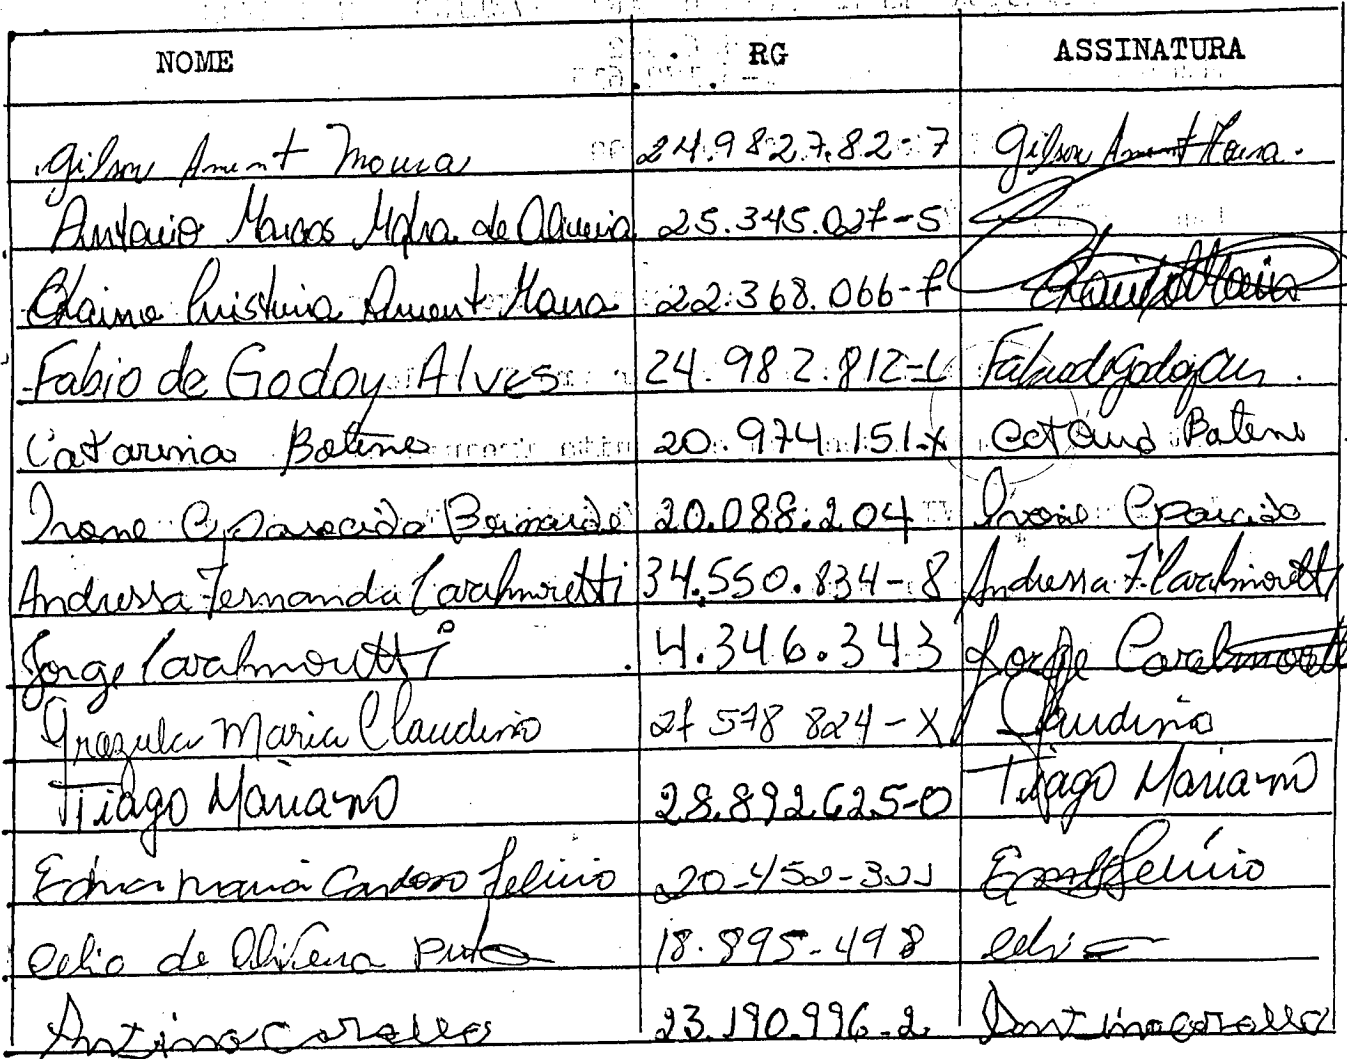 NOME RG ASSINATURA
Gilson Ament Moura 24.9827.82-7 Gilson Ament Moura.
Antonio Marcos de Oliveira 25.345.027-5
Elaine Cristina Ament Moura 22.368.066-7
Fabio de Godoy Alves 24.982.812-1 Fabio de Godoy Alves
Catarina Batena 20.974.151-X Catarina Batena
Ivone Aparecida 20.088.204 Ivone Aparecida
Andressa Fernanda Cavalmoretti 34.550.834-8 Andressa F. Cavalmoretti
Jorge Cavalmoretti 4.346.343 Jorge Cavalmoretti
Maria Claudino 27 578 824-X Claudino
Tiago Mariano 28.892.625-0 Tiago Mariano
Edna Maria Cardoso Felicio Felicio
Celio de Oliveira 18.895-498 Celio
23.190.996-2